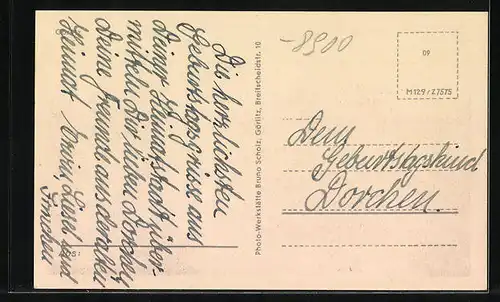 Die herzlichsten
Geburtstagsgrüsse aus
Deiner Heimatstadt über-
mitteln Dir liebes Dorchen
Deine Freunde aus derselben
Heimat Erwin, Liesel und
Ännchen
Photo-Werkstätte Bruno Scholz, Görlitz, Breitscheidstr. 10
-8900
09
M 129 / Z 7575
Dem
Geburtstagskind
Dorchen.